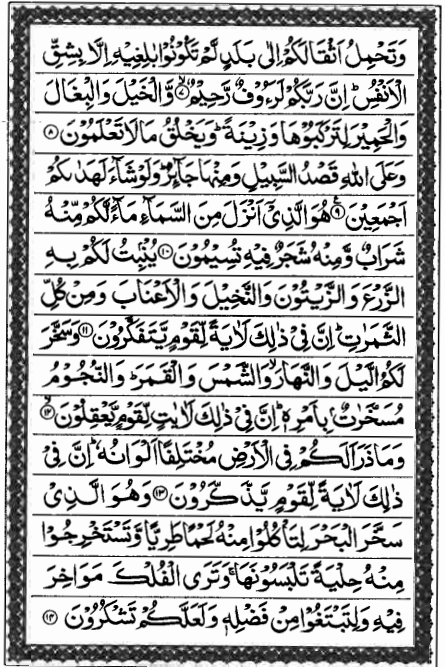 وَتَحْمِلُ اَثْقَالَكُمْ اِلٰى بَلَدٍ لَّمْ تَكُوْنُوْا بٰلِغِيْهِ اِلَّا بِشِقِّ
الْاَنْفُسِ ؕ اِنَّ رَبَّكُمْ لَرَءُوْفٌ رَّحِيْمٌ ۙ﴿۷﴾ وَّ الْخَيْلَ وَالْبِغَالَ
وَالْحَمِيْرَ لِتَرْكَبُوْهَا وَزِيْنَةً ؕ وَيَخْلُقُ مَا لَا تَعْلَمُوْنَ ﴿۸﴾
وَعَلَى اللّٰهِ قَصْدُ السَّبِيْلِ وَمِنْهَا جَآئِرٌ ؕ وَلَوْ شَآءَ لَهَدٰىكُمْ
اَجْمَعِيْنَ ﴿۹﴾ هُوَ الَّذِيْۤ اَنْزَلَ مِنَ السَّمَآءِ مَآءً لَّكُمْ مِّنْهُ
شَرَابٌ وَّمِنْهُ شَجَرٌ فِيْهِ تُسِيْمُوْنَ ﴿۱۰﴾ يُنْۢبِتُ لَكُمْ بِهِ
الزَّرْعَ وَالزَّيْتُوْنَ وَالنَّخِيْلَ وَالْاَعْنَابَ وَمِنْ كُلِّ
الثَّمَرٰتِ ؕ اِنَّ فِيْ ذٰلِكَ لَاٰيَةً لِّقَوْمٍ يَّتَفَكَّرُوْنَ ﴿۱۱﴾ وَسَخَّرَ
لَكُمُ الَّيْلَ وَالنَّهَارَ ۙ وَالشَّمْسَ وَالْقَمَرَ ؕ وَالنُّجُوْمُ
مُسَخَّرٰتٌۢ بِاَمْرِهٖ ؕ اِنَّ فِيْ ذٰلِكَ لَاٰيٰتٍ لِّقَوْمٍ يَّعْقِلُوْنَ ۙ﴿۱۲﴾
وَمَا ذَرَاَ لَكُمْ فِى الْاَرْضِ مُخْتَلِفًا اَلْوَانُهٗ ؕ اِنَّ فِيْ
ذٰلِكَ لَاٰيَةً لِّقَوْمٍ يَّذَّكَّرُوْنَ ﴿۱۳﴾ وَهُوَ الَّذِيْ
سَخَّرَ الْبَحْرَ لِتَاْكُلُوْا مِنْهُ لَحْمًا طَرِيًّا وَّتَسْتَخْرِجُوْا
مِنْهُ حِلْيَةً تَلْبَسُوْنَهَا ۚ وَتَرَى الْفُلْكَ مَوَاخِرَ
فِيْهِ وَلِتَبْتَغُوْا مِنْ فَضْلِهٖ وَلَعَلَّكُمْ تَشْكُرُوْنَ ﴿۱۴﴾